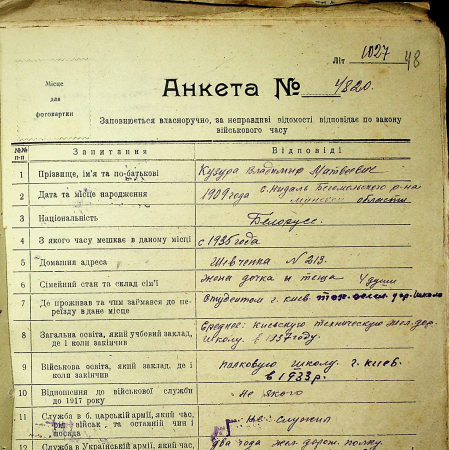 Літ 1027 48
Місце
для
фотокартки
Анкета № 4820.
Заповнюється власноручно, за неправдиві відомості відповідає по закону
військового часу
№№ п-п Запитання Відповіді
1 Прізвище, ім'я та по-батькові Кузура Владимир Матвеевич
2 Дата та місце народження 1909 года с. Нидаль Бегомльского р-на
минской области
3 Національність Белорусс.
4 З якого часу мешкає в даному місці с 1936 года
5 Домашня адреса Шевченка N 213.
6 Сімейний стан та склад сім'ї жена дочка и теща 4 души
7 Де проживав та чим займався до переїзду в дане місце Студентом г. киев дор. школа
8 Загальна освіта, який учбовий заклад, де і коли закінчив Среднее: киевскую техническую жел. дор.
школу. в 1937 году.
9 Військова освіта, який заклад, де і коли закінчив полковую школу. г. киев.
в 1933 р.
10 Відношення до військової служби до 1917 року не якого
11 Служба в б. царській армії, який час, рід військ, та останній чин і посада не служил
12 Служба в Українській армії, який час, два года жел. дорож. полку.